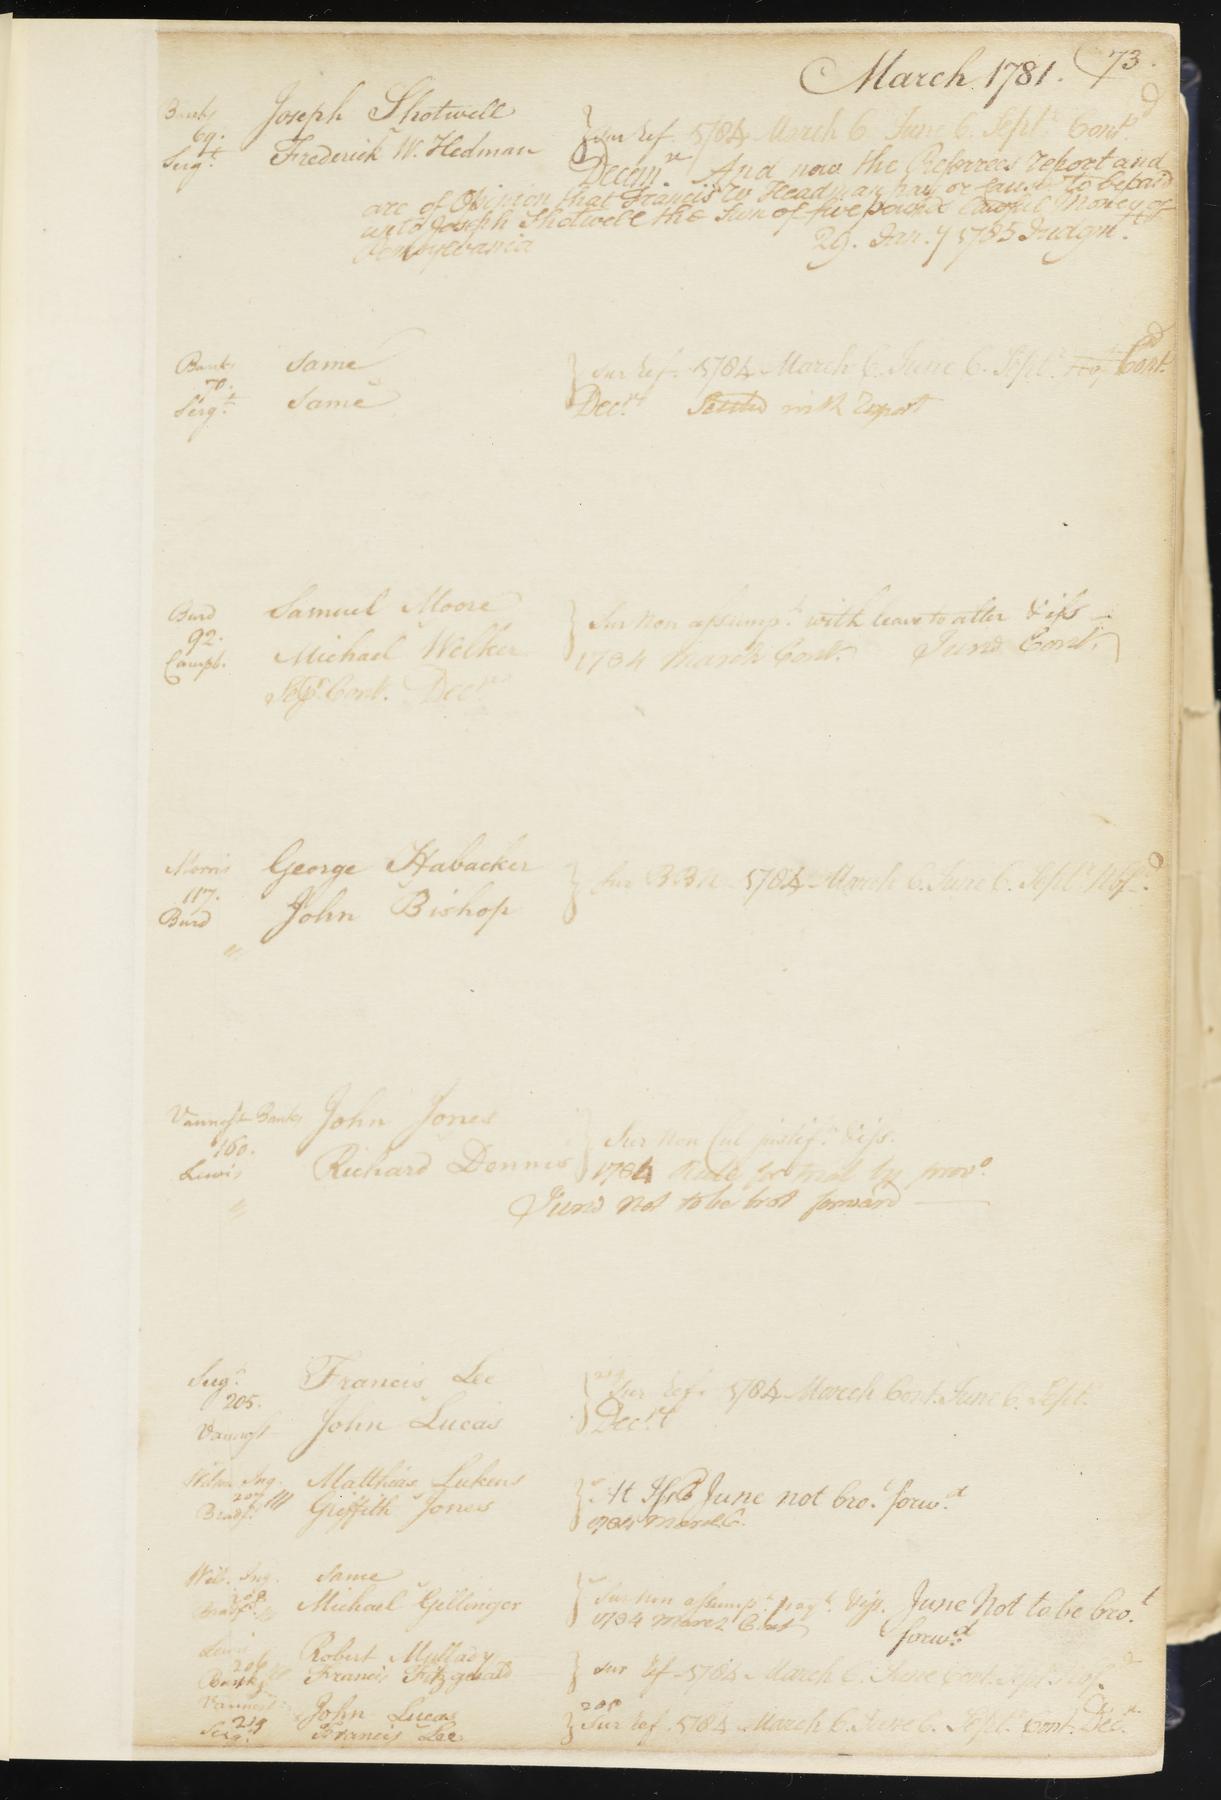 March 1781. 73.
Banks Joseph Shotwell
69. v
Serg.t Frederick W. Hedman
Sur Ref. 1784 March C June C. Sept.r Cont.d
Decem.r And now the Referrees report and
are of Opinion that Francis W Headman pay or cause to be paid
unto Joseph Shotwell the Sum of five pounds lawful Money of
Pensylvania 29. Jan.y 1785 Judgm.t
Banks Same
70. v
Serg.t Same
Sur Ref. 1784 March C. June C. Sept. Cont.d
Dec.r Settled with report
Burd Samuel Moore
92. v
Campb. Michael Welker
Sur Non assump.t with leave to alter & iss
1784 March Cont. June Cont.
Sep.r Cont. Dec.r
Morris George Habacker
117. v
Burd John Bishop
Sur 1784 March C. June C. Sept.r
Vannost Banks John Jones
160.
Lewis Richard Dennis
Sur Non Cul justif.n & iss.
1784 Rule for trial by prov.o
June Not to be brot forward
Serg.t Francis Lee
205. v
Vannost John Lucas
219 Sur Ref. 1784 March Cont. June C. Sept.
Dec.r
Wilson Ing. Matthias Lukens
207 v
Bradf. Griffith Jones
At Iss C June not bro.t forw.d
1784 March C.
Wils. Ing. Same
208 v
Bradf. Michael Gillinger
Sur Non assump.t pay.t & iss. June Not to be bro.t
1784 March Cont forw.d
Lewis Robert Mullady
Banks Francis Fitzgerald
Sur Ref 1784 March C. June Cont. Sept.
Vannost John Lucas
219 v
Serg.t Francis Lee
205 Sur Ref. 1784 March C. June C. Sept.r Cont. Dec.r